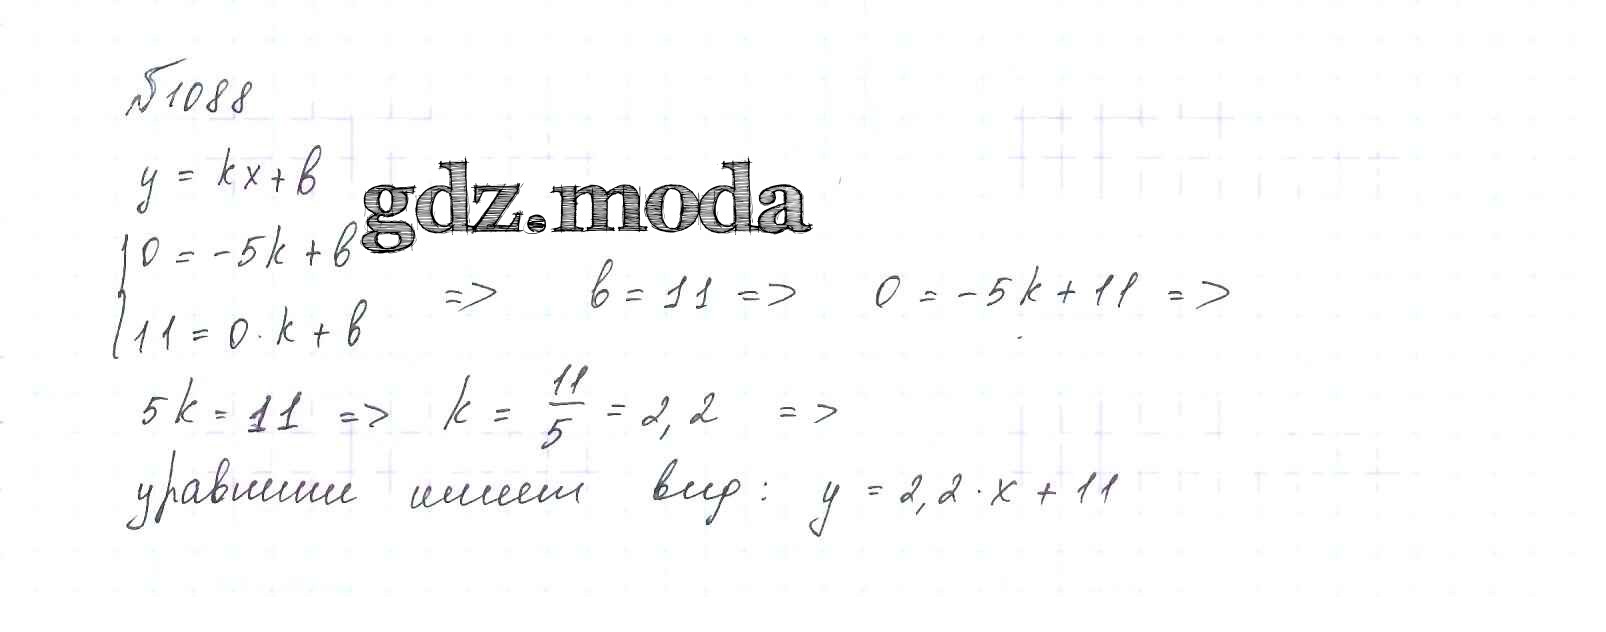 №1088
y = kx + b
gdz.moda
0 = -5k + b
11 = 0 · k + b
=> b = 11 => 0 = -5k + 11 =>
5k = 11 => k = 11/5 = 2,2 =>
уравнение имеет вид: y = 2,2 · x + 11